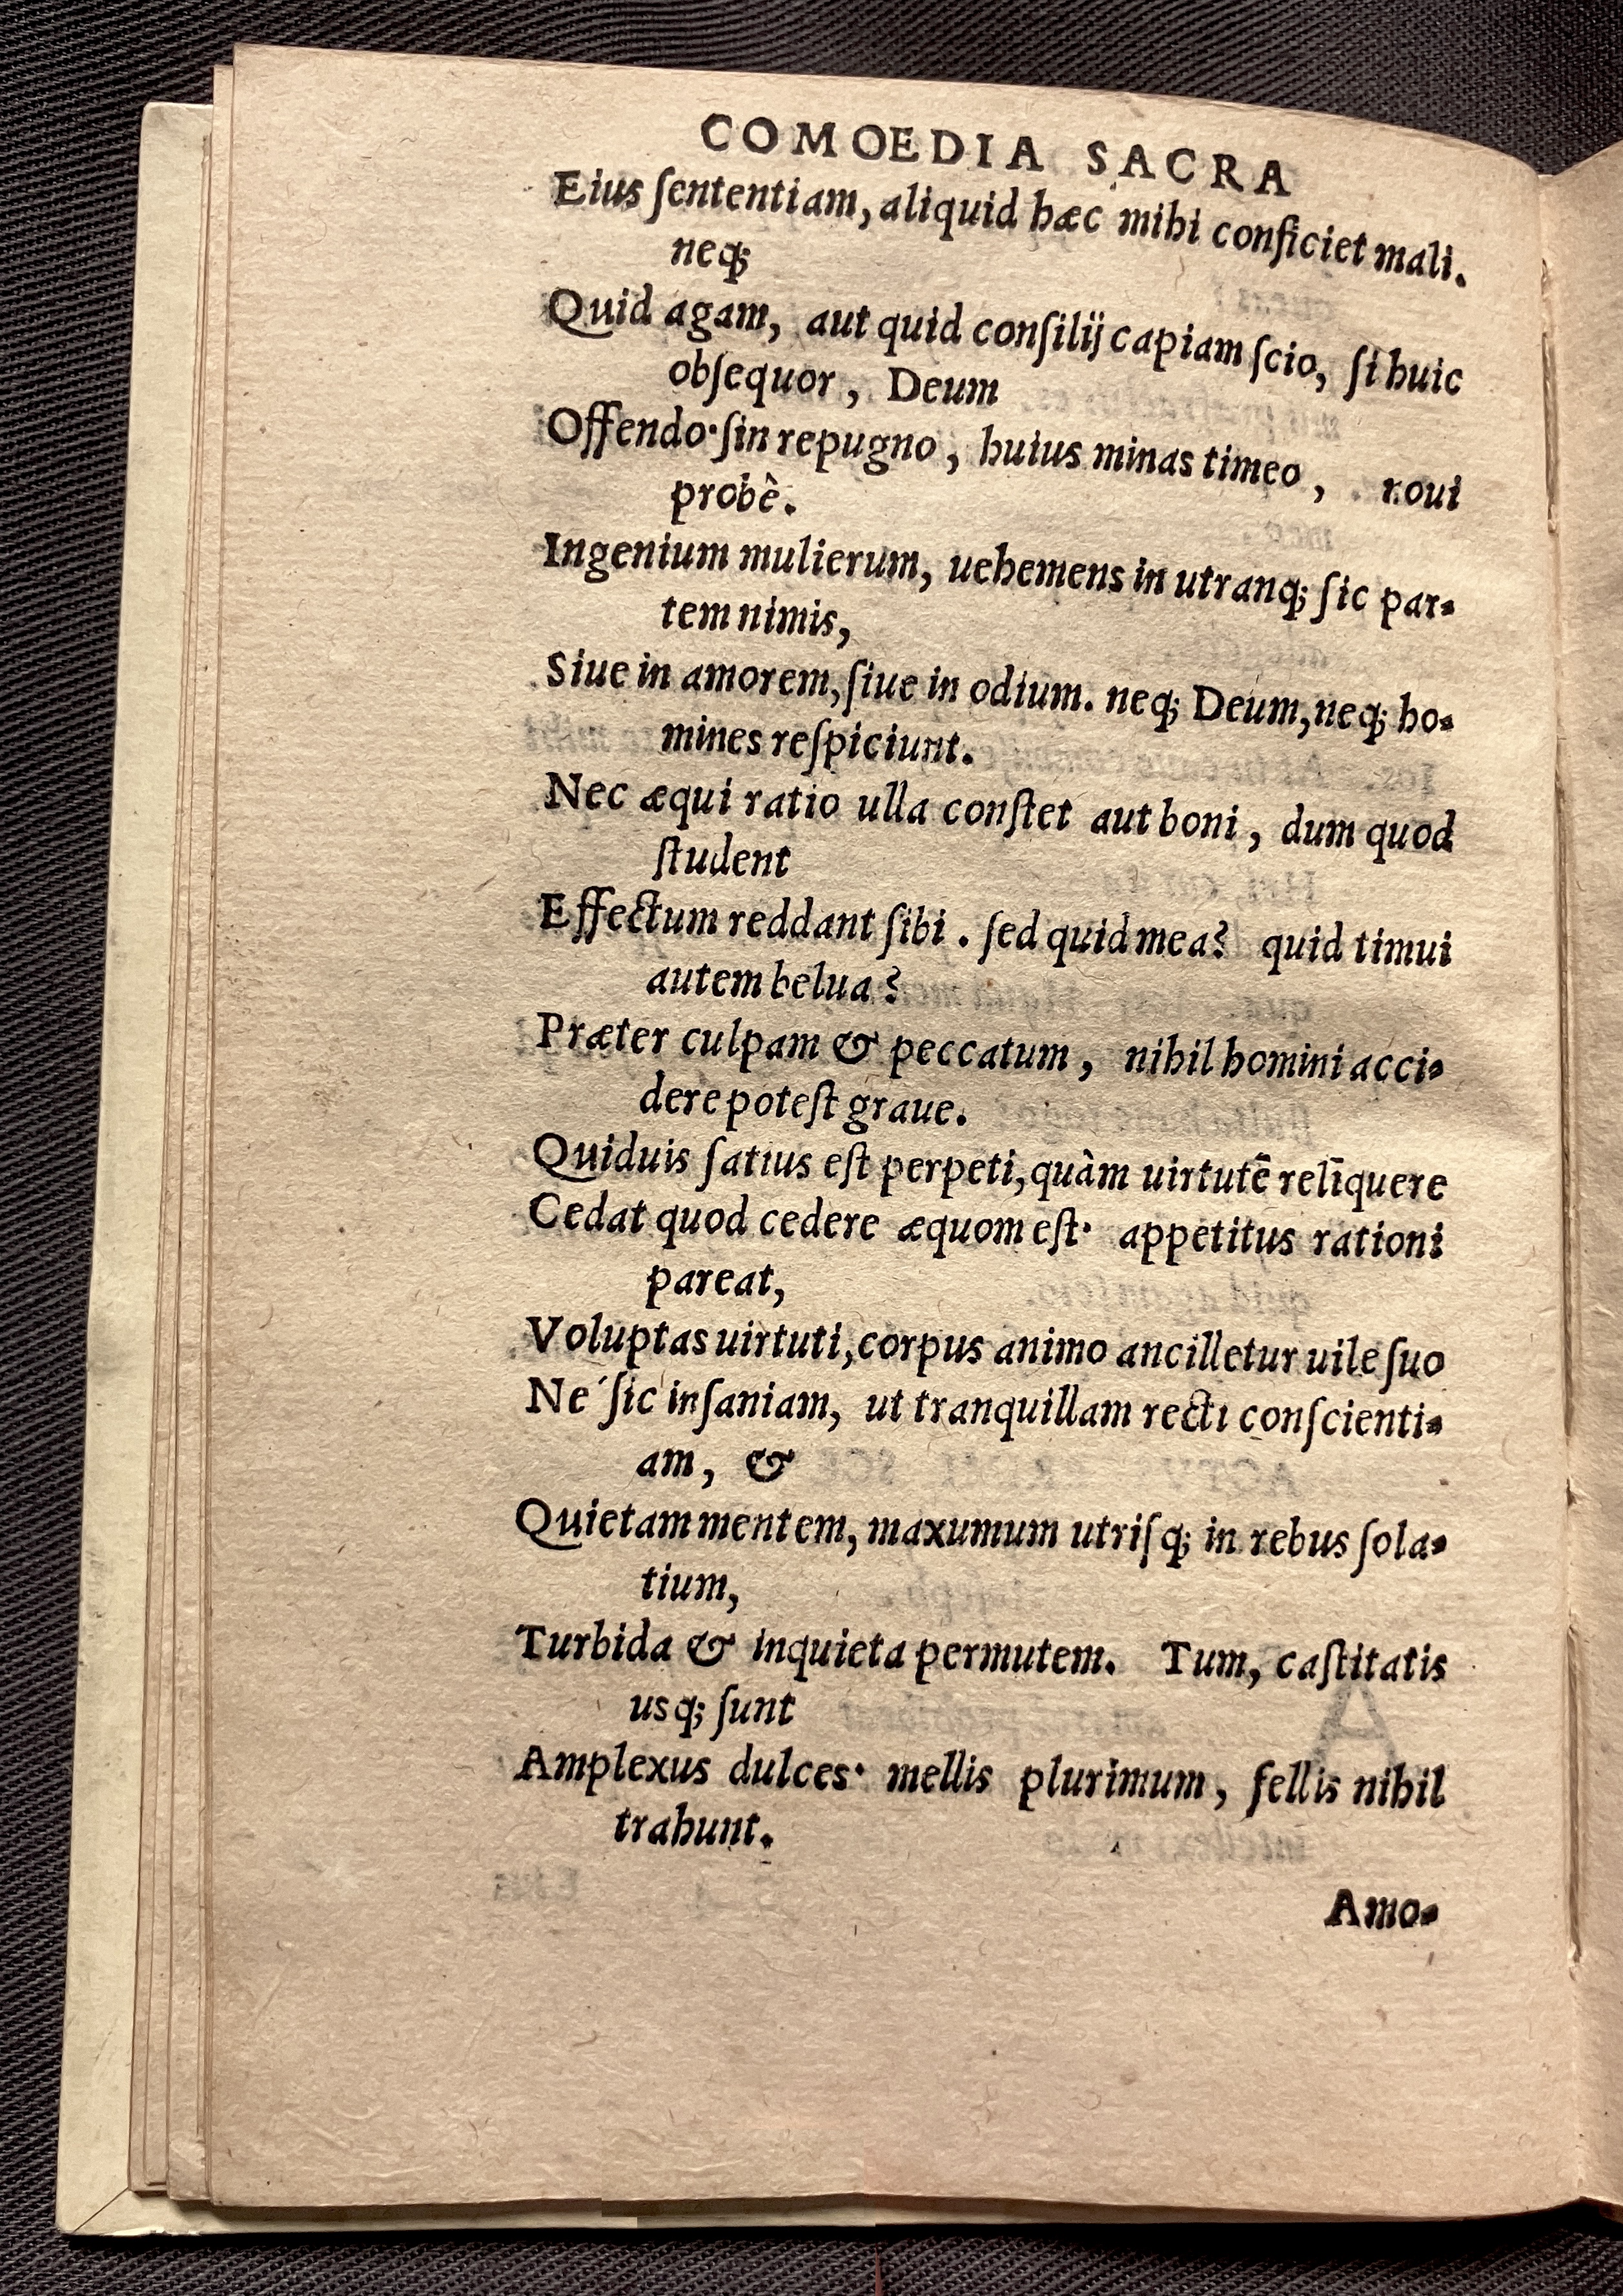 COMOEDIA SACRA
Eius ſententiam, aliquid hæc mihi conficiet mali.
neq;
Quid agam, aut quid conſilij capiam ſcio, ſi huic
obſequor, Deum
Offendo·ſin repugno, huius minas timeo, noui
probè.
Ingenium mulierum, uehemens in utranq; ſic par-
tem nimis,
Siue in amorem, ſiue in odium. neq; Deum, neq; ho-
mines reſpiciunt.
Nec æqui ratio ulla conſtet aut boni, dum quod
ſtudent
Effectum reddant ſibi. ſed quid mea? quid timui
autem belua?
Præter culpam & peccatum, nihil homini acci-
dere poteſt graue.
Quiduis ſatius eſt perpeti, quàm uirtutē relīquere
Cedat quod cedere æquom eſt· appetitus rationi
pareat,
Voluptas uirtuti, corpus animo ancilletur uile ſuo
Ne´ſic inſaniam, ut tranquillam recti conſcienti-
am, &
Quietam mentem, maxumum utriſq; in rebus ſola-
tium,
Turbida & inquieta permutem. Tum, caſtitatis
usq; ſunt
Amplexus dulces· mellis plurimum, fellis nihil
trahunt.
Amo-